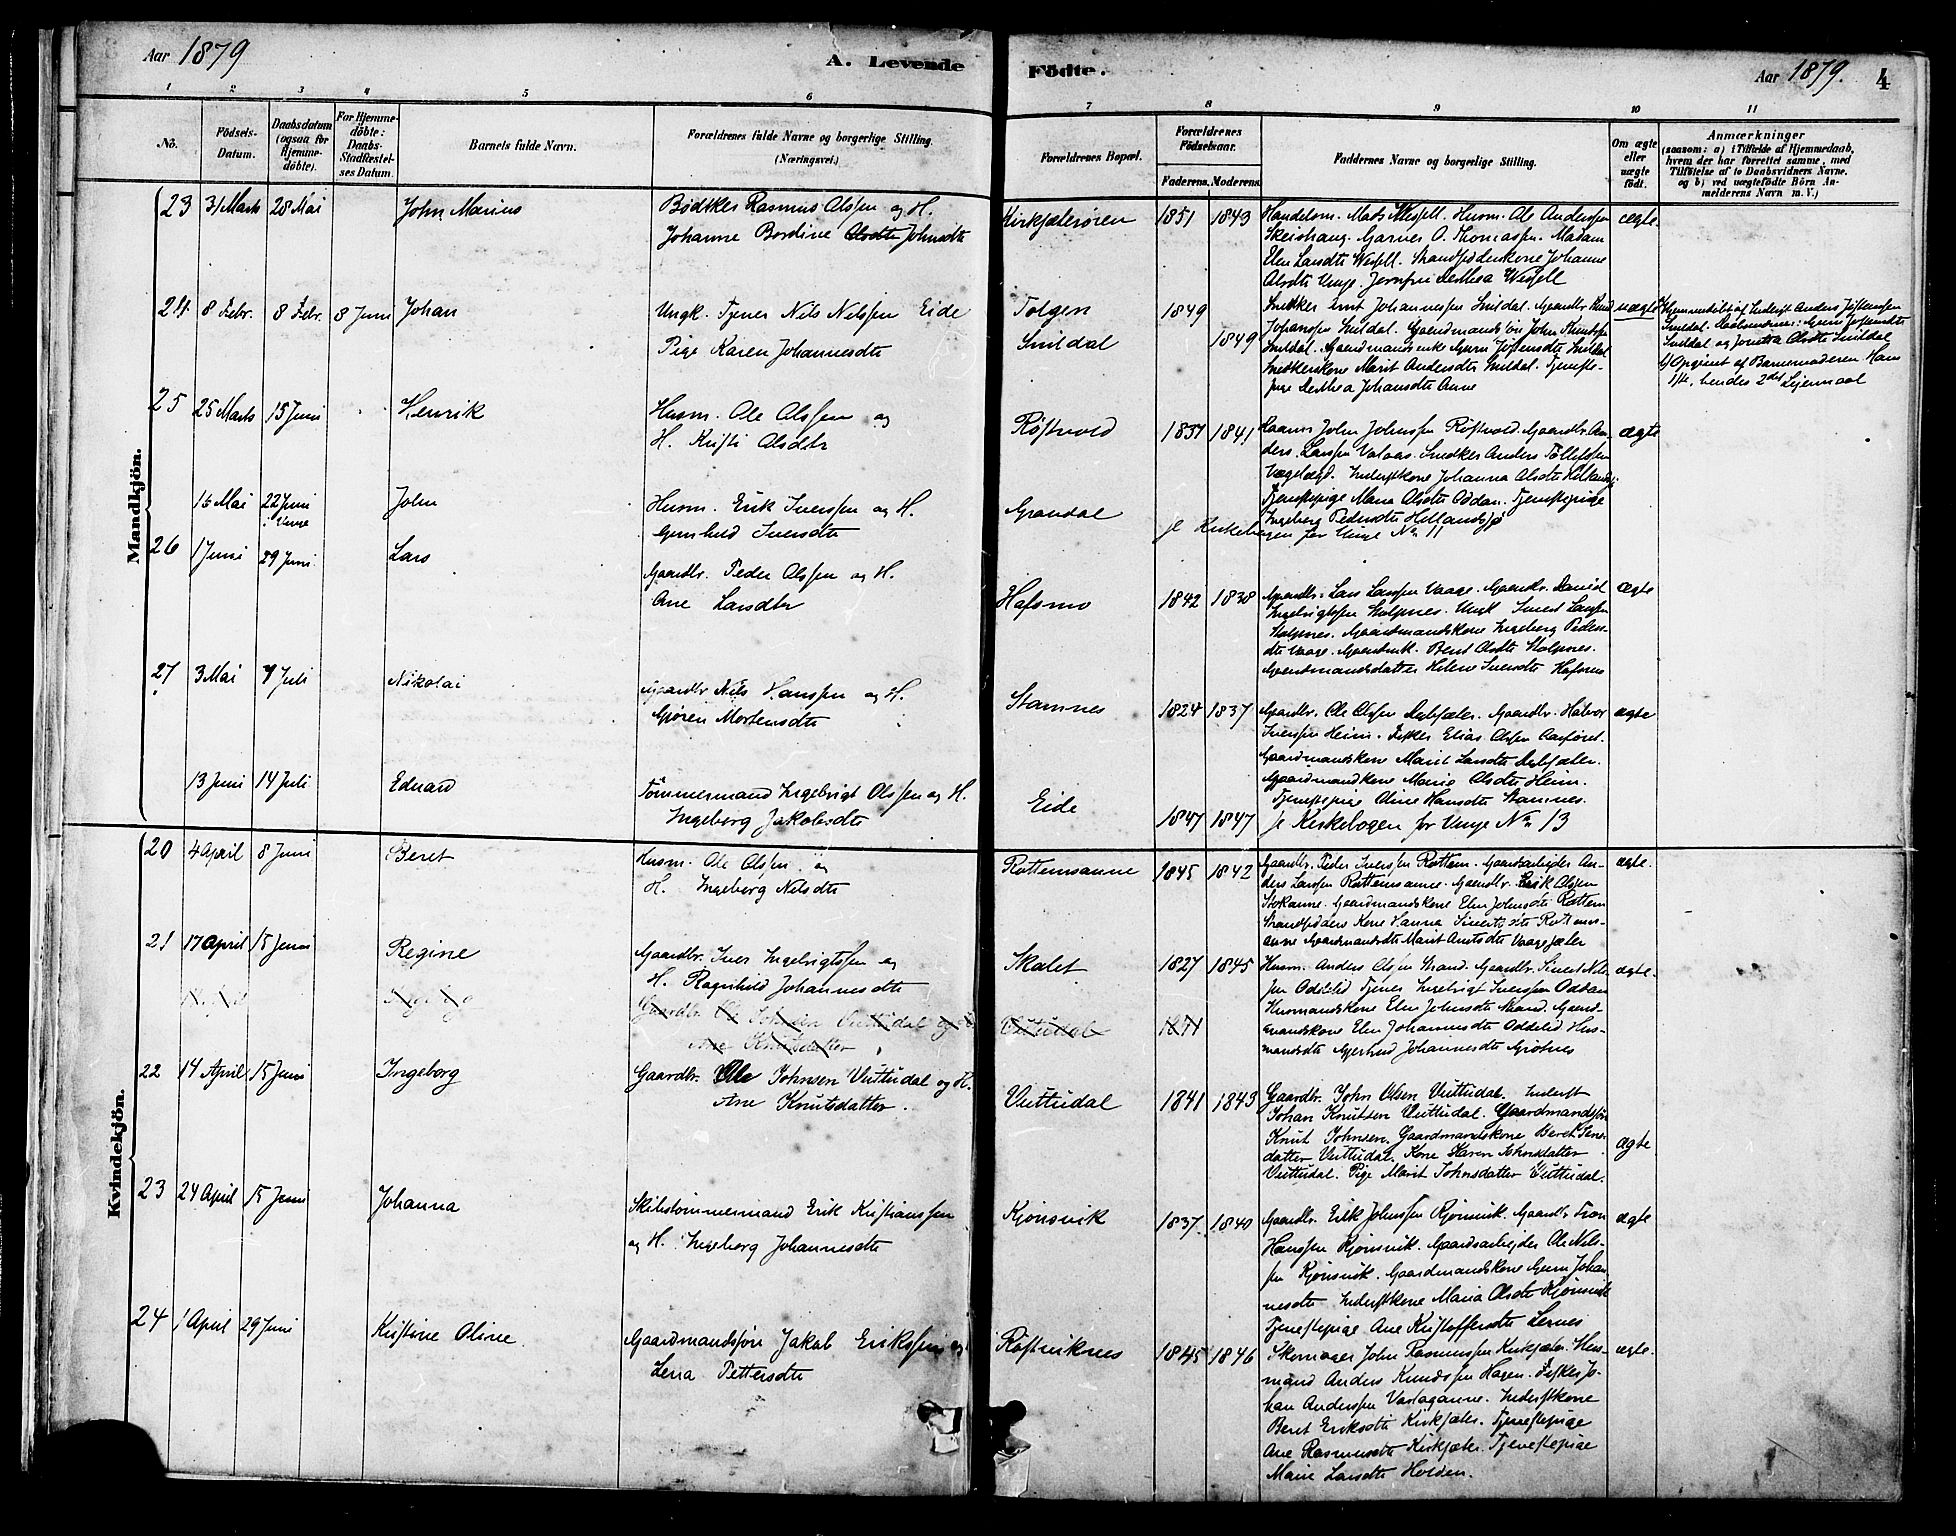 Aar 1879
A. Levende
Födte.
Aar 1879.
4
1 2 3 4 5 6 7 8 9 10 11
No.
Födsels-
Datum.
Daabsdatum
(ogsaa for
Hjemme-
döbte).
For Hjemme-
döbte:
Daabs-
Stadfæstel-
ses Datum.
Barnets fulde Navn.
Forældrenes fulde Navne og borgerlige Stilling.
(Næringsvei.)
Forældrenes Bopæl.
Forældrenes
Födselsaar.
Faderens. Moderens.
Faddernes Navne og borgerlige Stilling.
Om ægte
eller
uægte
födt.
Anmærkninger
(saasom: a) i Tilfælde af Hjemmedaab,
hvem der har forrettet samme, med
Tilföielse af to Daabsvidners Navne.
og b) ved uægtefödte Börn An-
melderens Navn m. V.)
Mandkjön.
23 31 Marts 28 Mai John Marius
Bødtker Rasmus Olssen og H.
Johanne Bordine Olsdtr Johnsdtr
Kirksæterøren 1851 1843 ægte.
Handelsm. Mads Wessell. Husm. Ole Anderssen
Skeishaug. Garver O. Thomassen. Madam
Elen Larsdtr Wessell. Strandsidderkone Johanne
Olsdtr Unge. Jomfru Dorthea Wessell
24 8 Febr. 8 Febr. 8 Juni Johan
Ungk. Tjener Nils Nilssen Eide
Pige Karen Johannesdtr
Tolgen 1849
Snildal 1849 uægte
Snedker Johannessen Snildal. Gaardbr. Knud
Johanssen Snildal. Gaardmandssøn John Knudssen
Snildal. Gaardmandsenke Gjøstensdtr Snildal
Snedkerkone Marit Andersdtr Snildal. Tjeneste-
pige Dorthea Johansdtr Aune
Hjemmedøbt af Inderst Anders Jøstenssen
Snildal.
Snildal og Olsdtr Snildal
b) Opgivet af Barnemoderen Hans
1ste, hendes 2det Leiermaal
25 25 Marts 15 Juni Henrik
Husm. Ole Olssen og
H. Kristi Olsdtr
Røstvold 1837 1841 ægte
John Johnssen Røstvold. Gaardbr. An-
ders Larssen Valaas. Snedker Anders Tollefssen
Vægelægd. Inderstkone Johanna Olsdtr
Tjenestepige Maria Olsdtr Oddan. Tjenestepige
Ingeborg Pedersdtr Hellandsjø
16 Mai 22 Juni
i Vinje
John
Husm. Erik Iverssen og H.
Gunhild Iversdtr
Grandal
se Kirkebogen for Vinje No 11
26 1 Juni 29 Juni Lars
Gaardbr. Peder Olssen og H.
Ane Larsdtr
Hafsmo 1842 1838 ægte
Gaardbr. Lars Larssen Vaage. Gaardbr. Daniel
Ingebrigtssen Stolpnes. Ungk Sivert Larssen
Stolpnes. Gaardmandskone Ingeborg Peders-
dtr Vaage. Beret Olsdtr Stolpnes.
Gaardmandsdatter Helene Iversdtr Hafsmo
27 3 Mai 7 Juli Nikolai
Gaardbr Nils Hanssen og H.
Gjøren Mortensdtr
Stamnes 1824 1837 ægte
Gaardbr. Ole Olssen . Gaardbr. Halvor
Iverssen Heim. Fisker Elias Olssen
Gaardmandskone Marit Larsdtr
Gaardmandkone Marie Olsdtr Heim.
Tjenestepige Oline Hansdtr Stamnes.
13 Juni 14 Juli Edvard
Tømmermand Ingebrigt Olssen og H.
Ingeborg Jakobsdtr
Eide 1847 1847 se Kirkebogen for Vinje No 13
Kvindekjön.
20 4 April 8 Juni Beret
Husm. Ole Olssen og
H. Ingeborg Nilsdtr
Rottemsaune 1845 1842 ægte.
Gaardbr. Peder Iverssen Rottem. Gaardsarbejder An-
ders Larssen Rottemsaune. Gaardbr. Erik Olssen
Stokaune. Gaardmandskone Elen Johnsdtr Rottem
Strandsidders Kone Hanna Sivertsdtr Rottems-
aune Gaardmandsdtr Marit Arntsdtr Vaagesæter
21 17 April 15 Juni Regine
Gaardbr. Iver Ingebrigtssen og
H. Ragnhild Johannesdtr
Skalet 1827 1845 ægte.
Husm. Anders Olssen Strand. Gaardbr. Sivert Nils-
sen Odddelid Tjener Ingebrigt Iverssen Oddan
Husmandskone Elen Johnsdtr Strand. Gaard-
mandskone Elen Johannesdtr Oddelid Hus-
mandsdtr Gjertrud Johannesdtr Grotnes
Ingeborg
Gaardbr. Ole Johnsen Vuttudal og H.
Ane Knutsdatter
Vuttudal 1841
22 14 April 15 Juni Ingeborg
Gaardbr. Ole Johnsen Vuttudal og H.
Ane Knutsdatter.
Vuttudal 1841 1843 ægte
Gaardbr. John Olsen Vuttudal. Inderst
Johan Knutsen Vuttudal. Gaardmandssøn
Knut Johnsen. Gaardmandskone Beret Iver-
datter Vuttudal. Kone Karen Johnsdatter
Vuttudal. Pige Marit Johnsdatter Vuttudal.
23 24 April 15 Juni Johanna
Skibstømmermand Erik Kristianssen
og H. Ingeborg Johannesdtr
Kjønsvik 1837 1840 ægte
Gaardbr. Erik Johnssen Kjønsvik. Gaardbr. Tron
Hanssen Kjønsvik. Gaardsarbejder Ole Nils-
sen Kjønsvik. Gaardmandskone Johan
nesdtr Inderstkone Maria Olsdtr Kjønsvik
Tjenestepige Ane Kristoffersdtr Lernes
24 1 April 29 Juni Kristine Oline
Gaardmandssøn Jakob Erikssen og
Lena Pettersdtr
Røstviknes 1845 1846 ægte.
Skomager John Rasmussen Kirksæter. Hus-
mand Anders Knudssen Hagen. Fisker Jo-
han Anderssen Vaslagaune. Inderstkone
Beret Eriksdtr Kirksæter. Tjenestepige
Ane Rasmusdtr Kirksæter. Tjenestepige
Marie Larsdtr Holden.